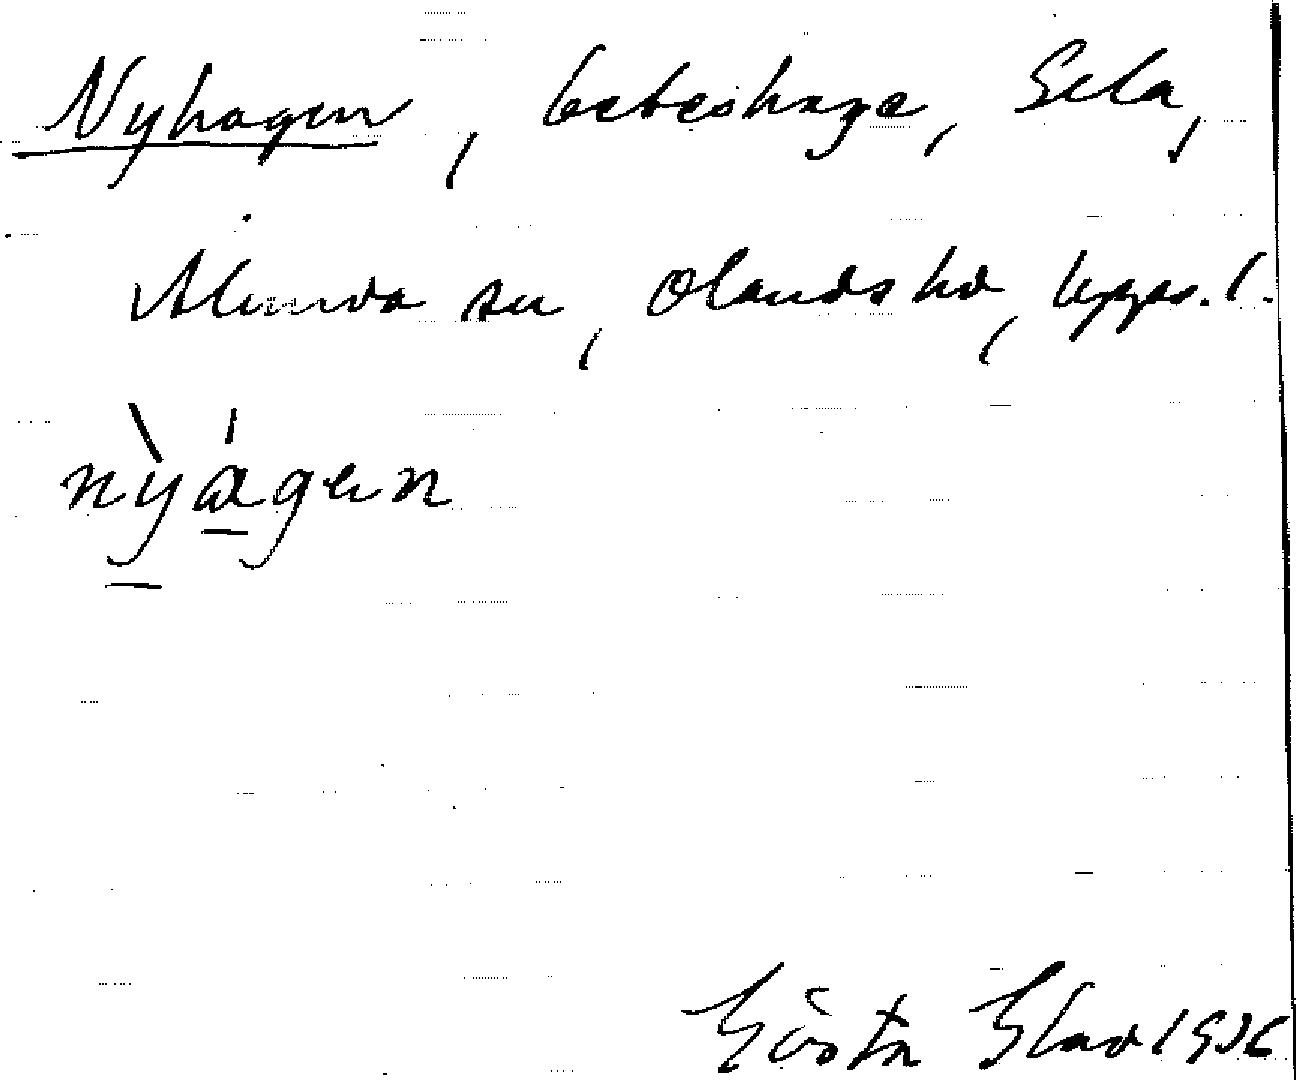 Nyhagen, beteshage, Sela,
Alunda sn, Olands hd, Upps. l.
nỳágen
Gösta Blad 1936